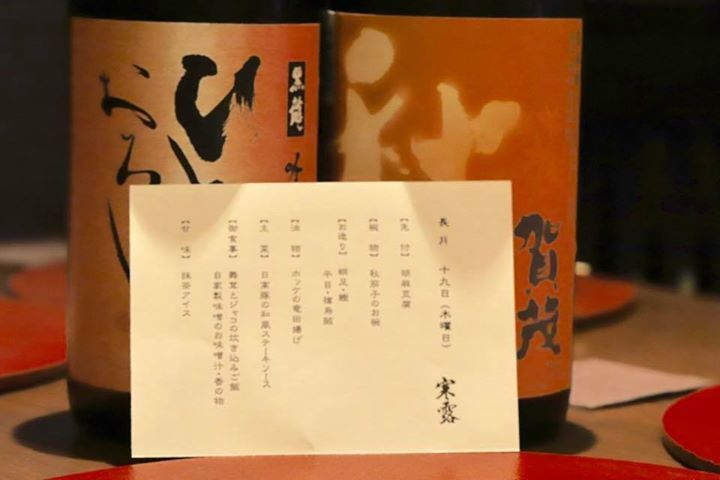 黒龍
ひ
おろし
秋
賀茂
長月 十九日（木曜日）
寒露
【先付】胡麻豆腐
【椀物】秋茄子のお椀
【お造り】
平目・
【油物】ホッケの竜田揚げ
【主菜】日南豚の和風ステーキソース
【御食事】舞茸とジャコの炊き込みご飯
自家製味噌のお味噌汁・香の物
【甘味】抹茶アイス